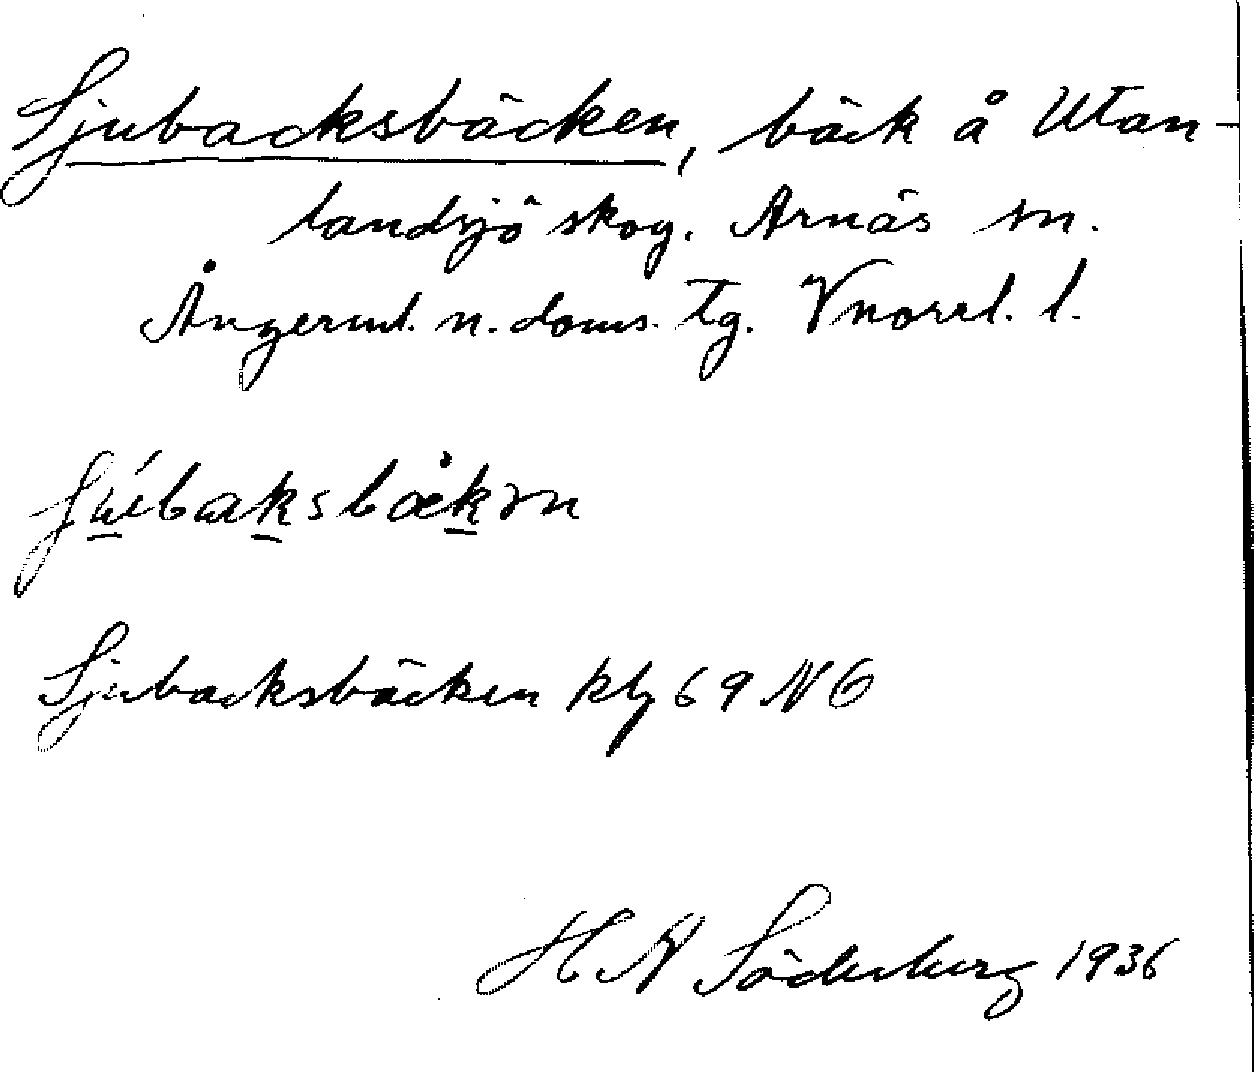 Sjubacksbäcken, bäck å Utan-
landsjö skog. Arnäs sn.
Ångerml. n. doms. tg. Vnorrl. l.
Sjubacksbäcken klg 69 NO
H N Söderberg 1936